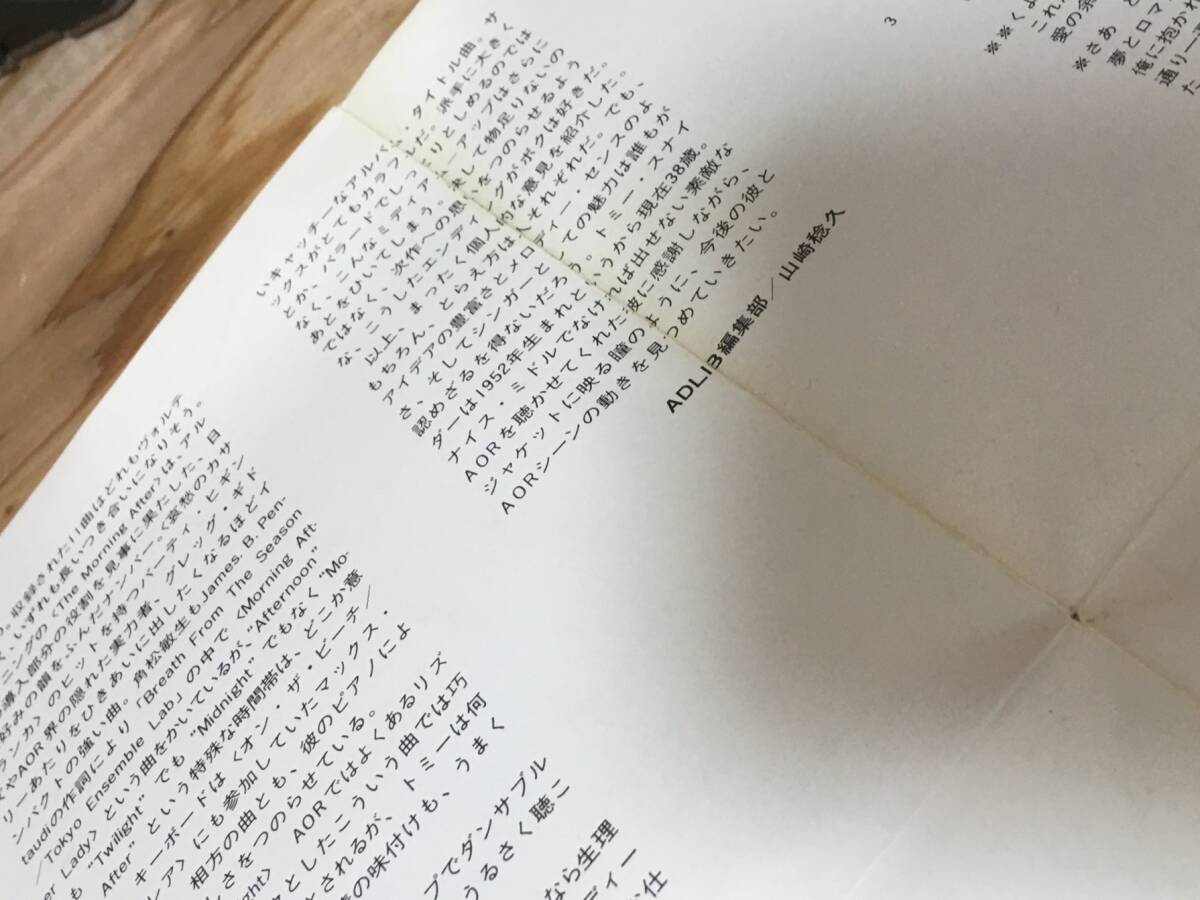 いキャッチーなアルバム・タイトル曲。サ
ックスがとてもカラフルだ。派手に大きく
とか、バラードでしっとりとしめるのでは
なく、こんなミディアム・アップはさらに
あとをひいてしまう。決して物足りないの
ではなく、次作への思いをつのらせるよう
な、こうしたエンディングがボクは好きだ。
以上、まったく個人的な意見を紹介した。
もちろん、とらえ方は人それぞれだ。でも、
アイデアの豊富さとメロディー・センスのよ
さ、そしてシンガーとしての魅力は誰もが
認めざるを得ないだろう。トミー・スナイ
ダーは1952年生まれというから現在38歳。
ナイス・ミドルでなければ出せない素敵な
AORを聴かせてくれた彼に感謝しながら、
ジャケットに映る瞳のように、今後の彼と
AORシーンの動きを見つめていきたい。
ADLIB編集部／山崎稔久
収録された11曲はどれもヴォルテ
いずれも長いつき合いになりそう。
ニングの〈The Morning After〉は、アル
導入部分の役割を見事に果たした、日
好みの韻をふんだナンバー。〈哀愁のカサ
ランカ〉のヒットを持つバーティ・ヒギン
ズやAOR界の隠れた実力者、グレッグ・ギド
リーあたりをひきあいに出したくなるほどイ
ンパクトの強い曲。角松敏生もJames. B. Pen-
taudiの作詞により「Breath From The Season
／Tokyo Ensemble Lab」の中で〈Morning Aft-
er Lady〉という曲をかいているが、“Afternoon”
も“Twilight”でも“Midnight”でもなく“Mo-
After”という特殊な時間帯は、どこか意
キーボードは〈オン・ザ・ビーチ／
レア〉にも参加していたマックス・
相方の曲とも、彼のピアノによ
しさをつのらせている。
ght〉 AORではよくあるリズ
としたこういう曲では巧
されるが、トミーは何
の味付けも、うまく
プでダンサブル
うるさく聴こ
なら生理
ディー
仕
3
※※くよ
これ
愛の余
※さあ と
夢とロマ
俺に抱かれ
通り一
た